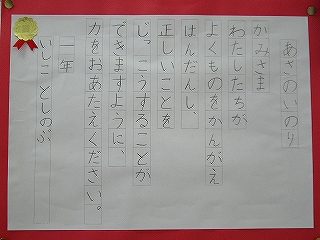 あさのいのり
かみさま
わたしたちが
よくものをかんがえ
はんだんし、
正しいことを
じっこうすることが
できますように、
力をおあたえください。
一年
いしことしのぶ